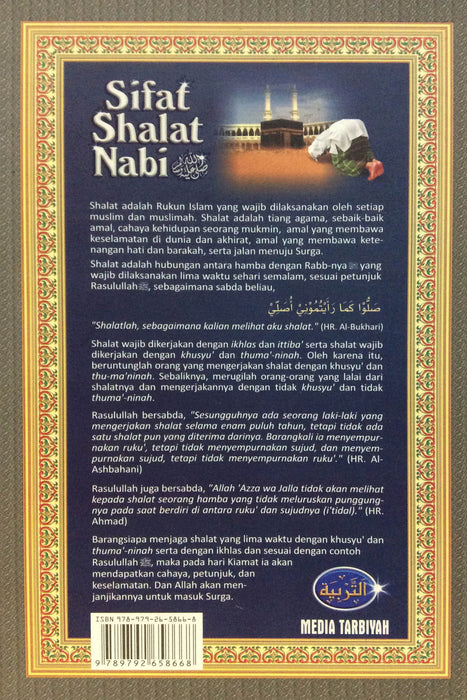 Sifat
Shalat
Nabi ﷺ
Shalat adalah Rukun Islam yang wajib dilaksanakan oleh setiap
muslim dan muslimah. Shalat adalah tiang agama, sebaik-baik
amal, cahaya kehidupan seorang mukmin, amal yang membawa
keselamatan di dunia dan akhirat, amal yang membawa kete-
nangan hati dan barakah, serta jalan menuju Surga.
Shalat adalah hubungan antara hamba dengan Rabb-nya yang
wajib dilaksanakan lima waktu sehari semalam, sesuai petunjuk
Rasulullah ﷺ, sebagaimana sabda beliau,
صَلُّوْا كَمَا رَأَيْتُمُوْنِيْ أُصَلِّيْ
"Shalatlah, sebagaimana kalian melihat aku shalat." (HR. Al-Bukhari)
Shalat wajib dikerjakan dengan ikhlas dan ittiba' serta shalat wajib
dikerjakan dengan khusyu' dan thuma'-ninah. Oleh karena itu,
beruntunglah orang yang mengerjakan shalat dengan khusyu' dan
thu-ma'ninah. Sebaliknya, merugilah orang-orang yang lalai dari
shalatnya dan mengerjakannya dengan tidak khusyu' dan tidak
thuma'-ninah.
Rasulullah bersabda, "Sesungguhnya ada seorang laki-laki yang
mengerjakan shalat selama enam puluh tahun, tetapi tidak ada
satu shalat pun yang diterima darinya. Barangkali ia menyempur-
nakan ruku', tetapi tidak menyempurnakan sujud, dan menyem-
purnakan sujud, tetapi tidak menyempurnakan ruku'." (HR. Al-
Ashbahani)
Rasulullah juga bersabda, "Allah 'Azza wa Jalla tidak akan melihat
kepada shalat seorang hamba yang tidak meluruskan punggung-
nya pada saat berdiri di antara ruku' dan sujudnya (i'tidal)." (HR.
Ahmad)
Barangsiapa menjaga shalat yang lima waktu dengan khusyu' dan
thuma'-ninah serta dengan ikhlas dan sesuai dengan contoh
Rasulullah ﷺ, maka pada hari Kiamat ia akan
mendapatkan cahaya, petunjuk, dan
keselamatan. Dan Allah akan men-
janjikannya untuk masuk Surga.
التربية
MEDIA TARBIYAH
ISBN 978-979-26-5866-8
9 789792 658668